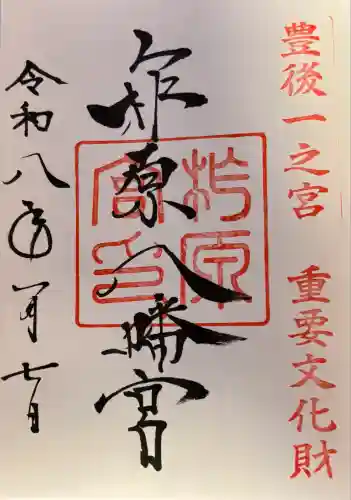 豊後一之宮 重要文化財
柞原八幡宮
柞原宮印
令和八年一月七日